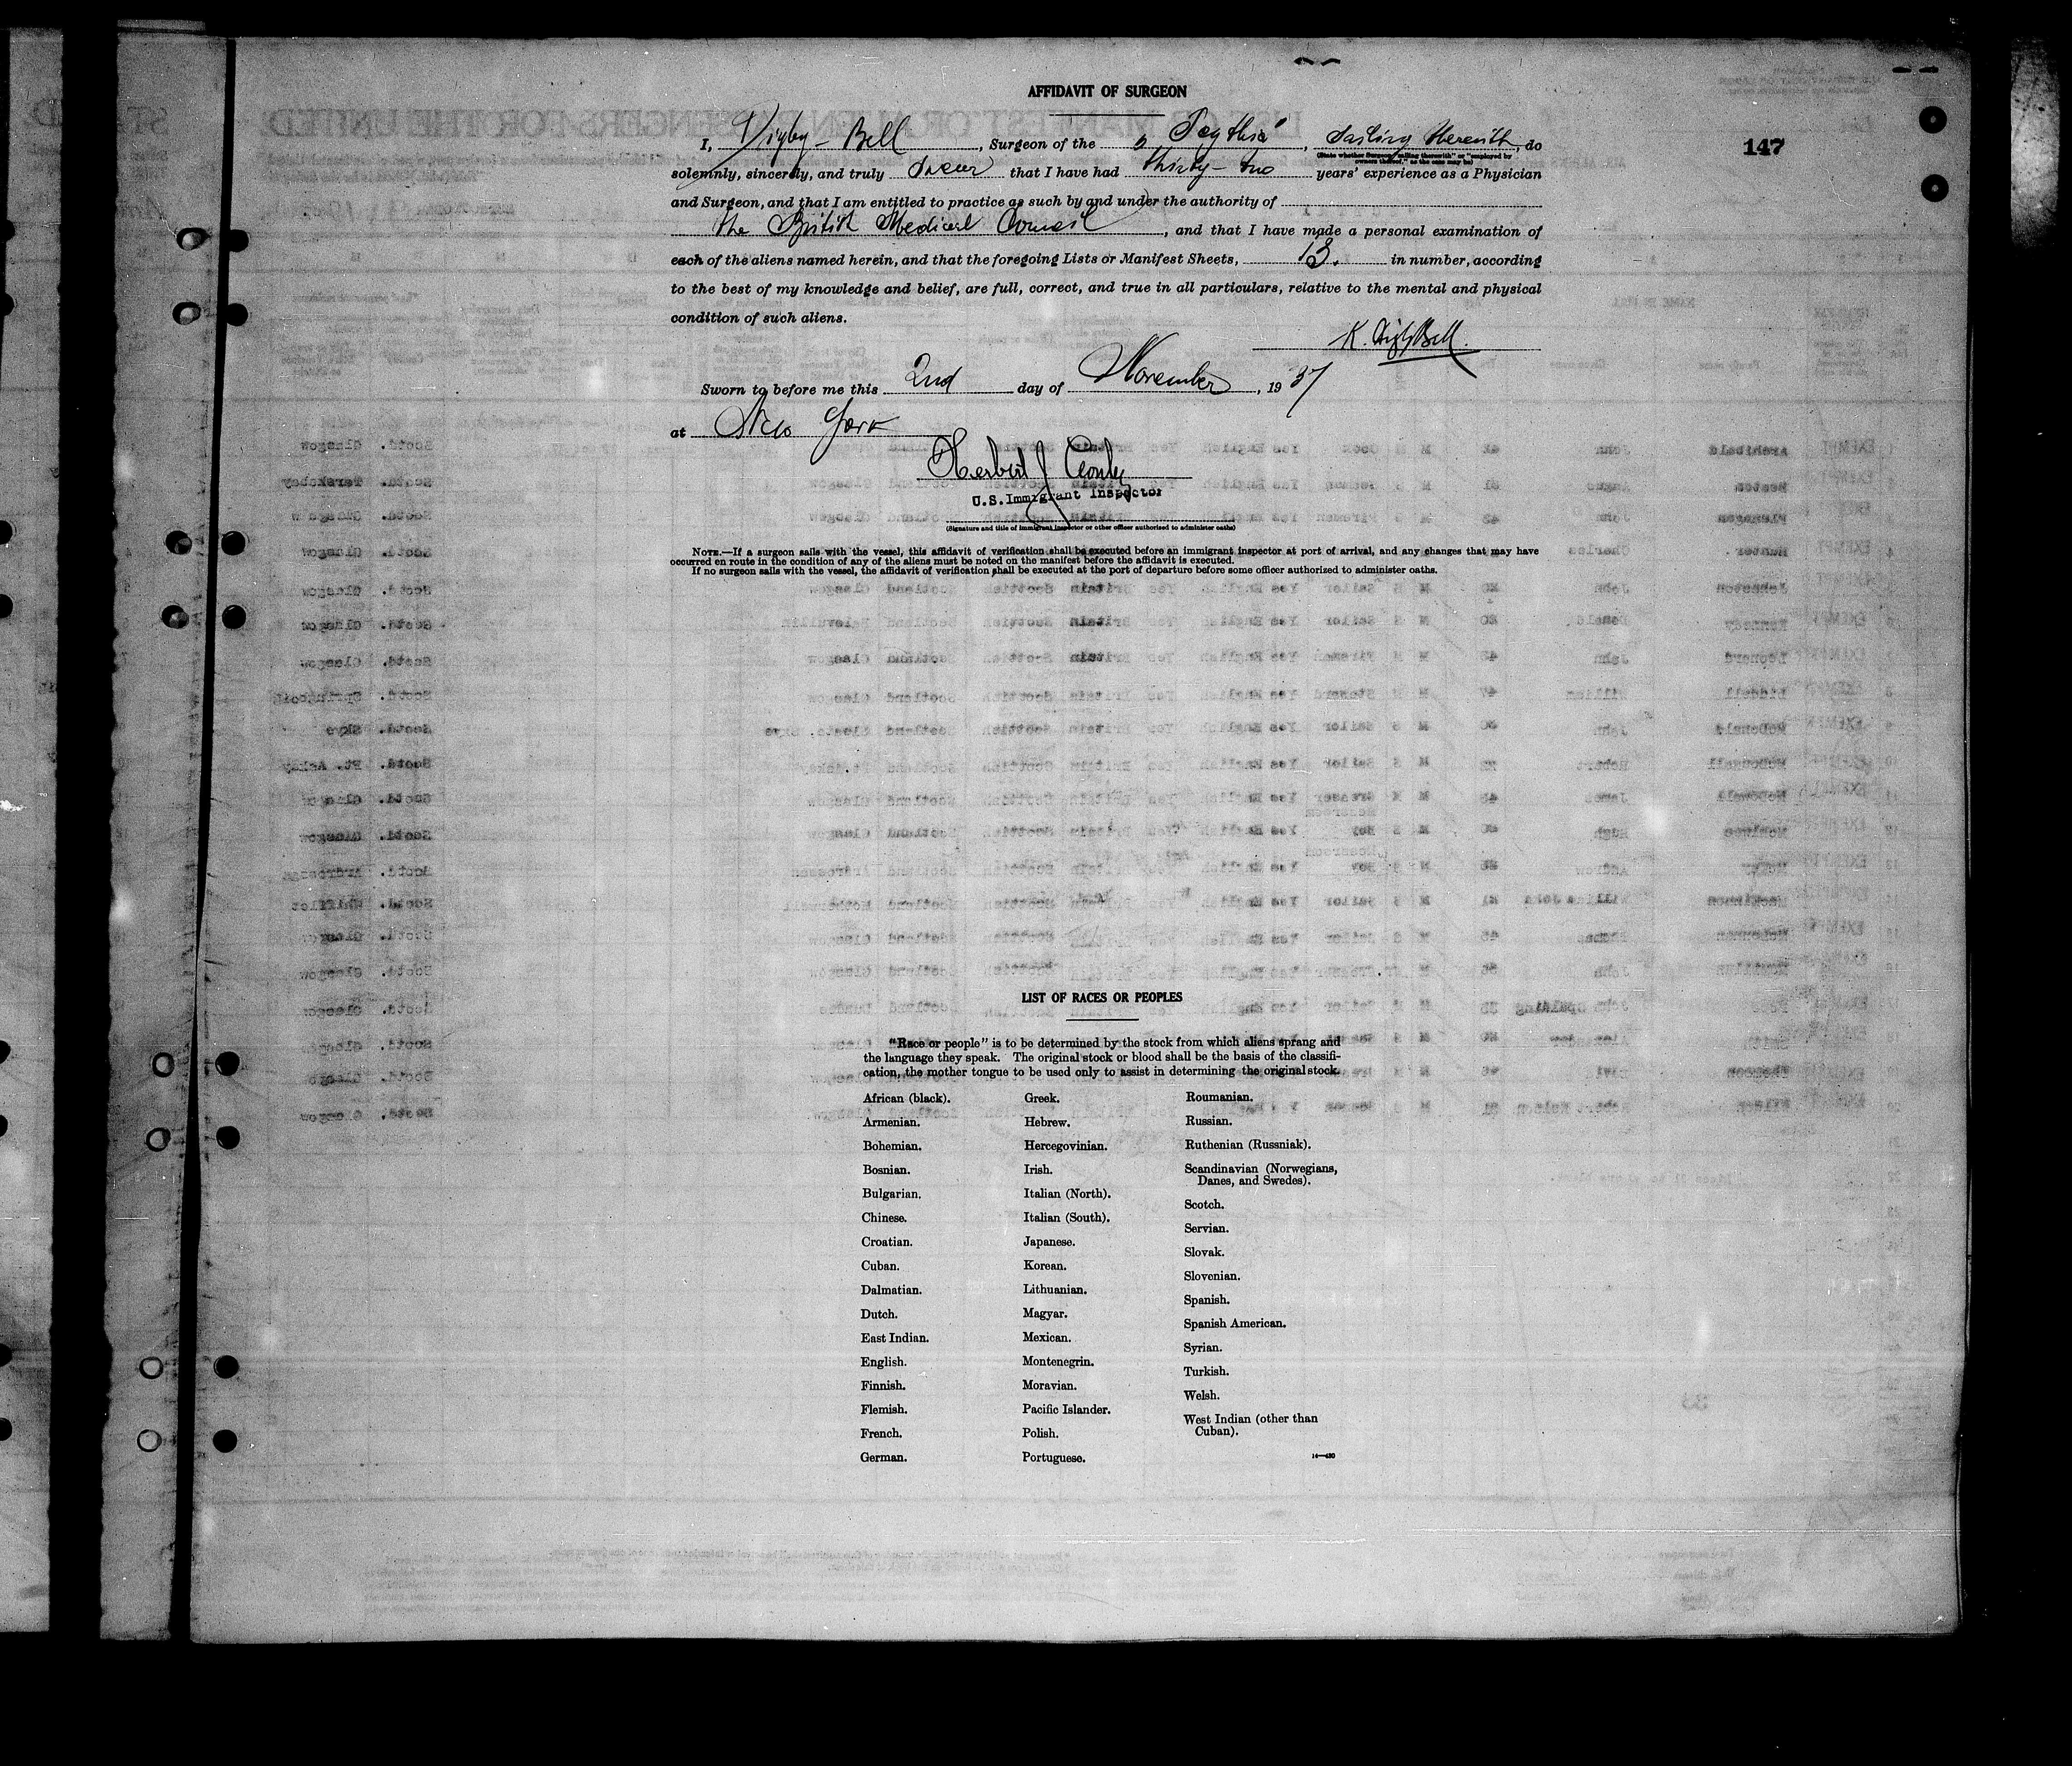 AFFIDAVIT OF SURGEON
147
I, Digby-Bell, Surgeon of the "Scythia", Sailing therewith, do
(State whether Surgeon "sailing therewith" or "employed by
owners thereof," as the case may be)
solemnly, sincerely, and truly swear that I have had thirty-two years' experience as a Physician
and Surgeon, and that I am entitled to practice as such by and under the authority of
the British Medical Council, and that I have made a personal examination of
each of the aliens named herein, and that the foregoing Lists or Manifest Sheets, 13. in number, according
to the best of my knowledge and belief, are full, correct, and true in all particulars, relative to the mental and physical
condition of such aliens.
K. Digby Bell.
Sworn to before me this 2nd day of November, 1937
at New York
Herbert J
U.S. Immigrant Inspector
(Signature and title of immigrant inspector or other officer authorized to administer oaths)
NOTE.—If a surgeon sails with the vessel, this affidavit of verification shall be executed before an immigrant inspector at port of arrival, and any changes that may have
occurred en route in the condition of any of the aliens must be noted on the manifest before the affidavit is executed.
If no surgeon sails with the vessel, the affidavit of verification shall be executed at the port of departure before some officer authorized to administer oaths.
LIST OF RACES OR PEOPLES
"Race or people" is to be determined by the stock from which aliens sprang and
the language they speak. The original stock or blood shall be the basis of the classifi-
cation, the mother tongue to be used only to assist in determining the original stock.
African (black).
Armenian.
Bohemian.
Bosnian.
Bulgarian.
Chinese.
Croatian.
Cuban.
Dalmatian.
Dutch.
East Indian.
English.
Finnish.
Flemish.
French.
German.
Greek.
Hebrew.
Hercegovinian.
Irish.
Italian (North).
Italian (South).
Japanese.
Korean.
Lithuanian.
Magyar.
Mexican.
Montenegrin.
Moravian.
Pacific Islander.
Polish.
Portuguese.
Roumanian.
Russian.
Ruthenian (Russniak).
Scandinavian (Norwegians,
Danes, and Swedes).
Scotch.
Servian.
Slovak.
Slovenian.
Spanish.
Spanish American.
Syrian.
Turkish.
Welsh.
West Indian (other than
Cuban).
14—430